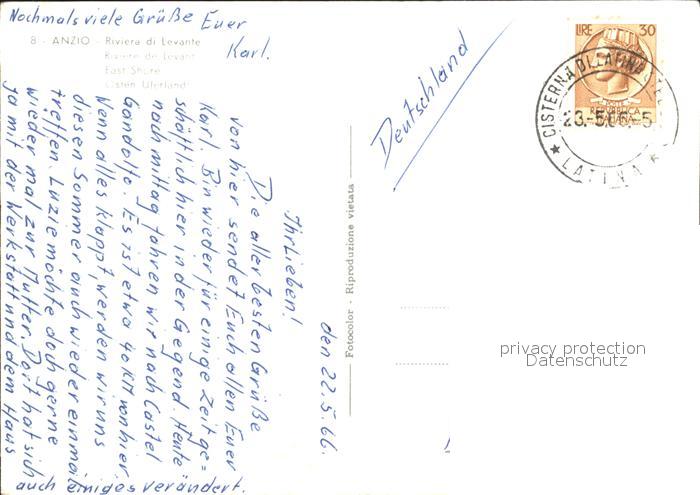 Nochmals viele Grüße Euer
Karl.
8 - ANZIO - Riviera di Levante
Riviere de Levant
East Shore
Osten Uferland
Deutschland
LIRE 30
REPUBBLICA
ITALIANA
CISTERNA DI LATINA
23.-5.66-5
LATINA
Fotocolor - Riproduzione vietata
privacy protection
Datenschutz
den 22.5.66.
Ihr Lieben!
Die allerbesten Grüße
von hier sendet Euch allen Euer
Karl. Bin wieder für einige Zeit ge=
schäftlich hier in der Gegend. Heute
nach mittag fahren wir nach Castel
Gandolfo. Es ist etwa 40 KM von hier.
Wenn alles klappt, werden wir uns
diesen Sommer auch wieder einmal
treffen. Luzie möchte doch gerne
wieder mal zur Mutter. Dort hat sich
ja mit der Werkstatt und dem Haus
auch einiges verändert.